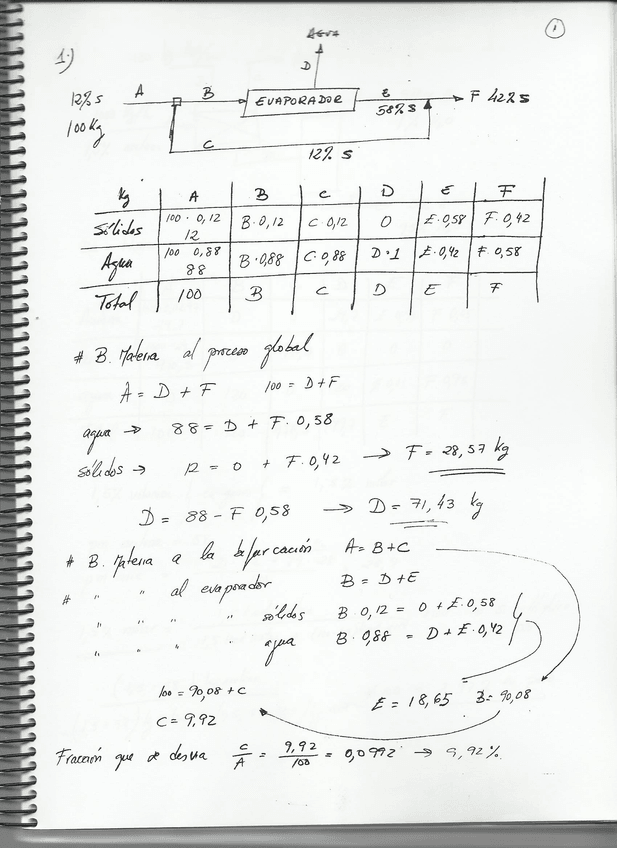 1
1.)
AGUA
D
A B EVAPORADOR E F 42% s
12% s
58% s
100 Kg
C
12% s
Kg A B C D E F
Sólidos 100 · 0,12 12 B·0,12 C·0,12 0 E·0,58 F·0,42
Agua 100 0,88 88 B·0,88 C·0,88 D·1 E·0,42 F·0,58
Total 100 B C D E F
# B. Materia al proceso global
A = D + F 100 = D + F
agua → 88 = D + F·0,58
sólidos → 12 = 0 + F·0,42 → F = 28,57 kg
D = 88 - F 0,58 → D = 71,43 kg
# B. Materia a la bifurcación A = B + C
# " " al evaporador B = D + E
" " " " sólidos B·0,12 = 0 + E·0,58
" " " " agua B·0,88 = D + E·0,42
100 = 90,08 + C E = 18,65 B = 90,08
C = 9,92
Fracción que se desvia C/A = 9,92/100 = 0,0992 → 9,92%